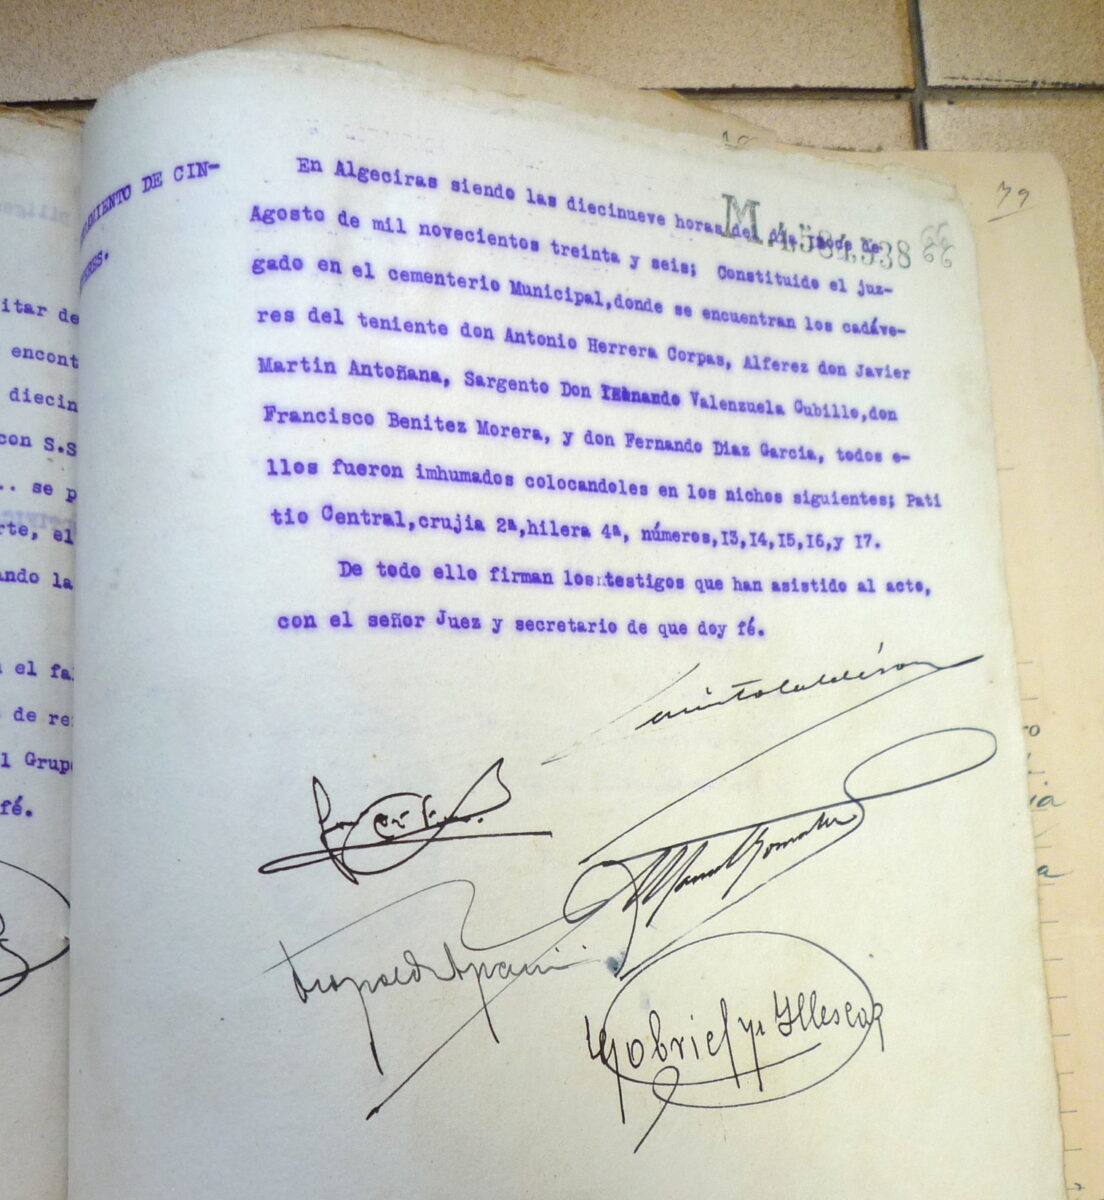 79
M.4584538
66
66
DE CIN-
En Algeciras siendo las diecinueve horas del dia de
Agosto de mil novecientos treinta y seis; Constituido el juz-
gado en el cementerio Municipal,donde se encuentran los cadáve-
res del teniente don Antonio Herrera Corpas, Alferez don Javier
Martin Antoñana, Sargento Don Valenzuela Cubillo,don
Francisco Benitez Morera, y don Fernando Diaz Garcia, todos e-
llos fueron imhumados colocandoles en los nichos siguientes; Pati
tio Central,crujia 2ª,hilera 4ª, números,13,14,15,16,y 17.
De todo ello firman los testigos que han asistido al acto,
con el señor Juez y secretario de que doy fé.
Manuel Gonzalez
Gabriel Illescas
itar de
encont
diecin
con S.S
.. se p
rte, el
ando la
el fa
de re
l Grup
fé.